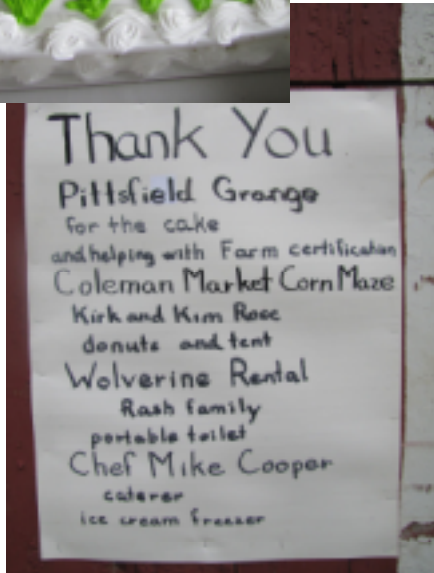 Thank You
Pittsfield Grange
for the cake
and helping with Farm certification
Coleman Market Corn Maze
Kirk and Kim Rose
donuts and tent
Wolverine Rental
Rash family
portable toilet
Chef Mike Cooper
caterer
ice cream freezer